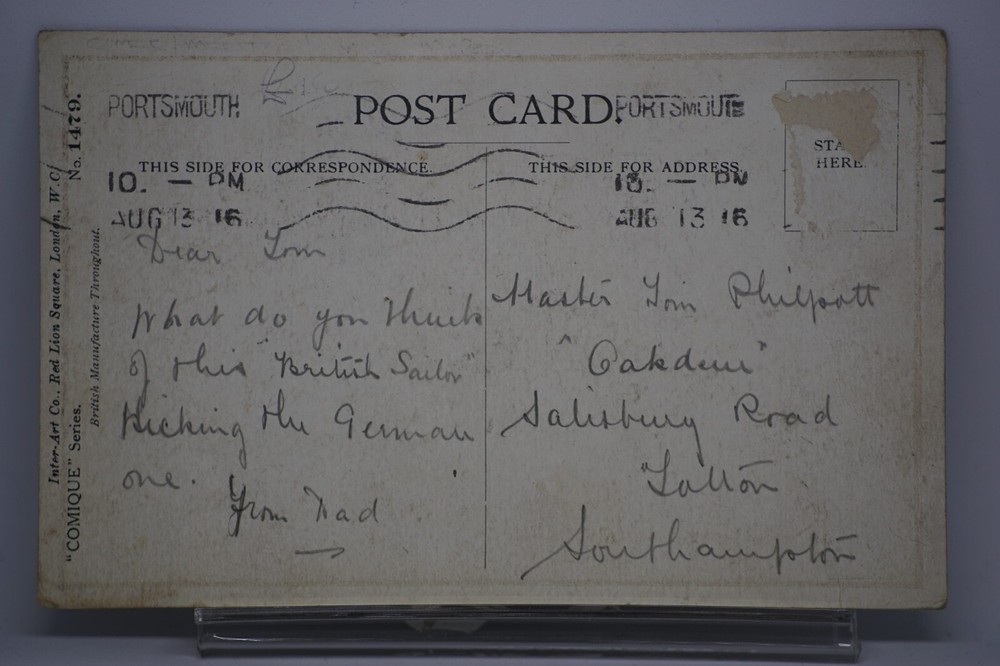 PORTSMOUTH
POST CARD.
PORTSMOUTH
STA
HERE.
THIS SIDE FOR CORRESPONDENCE.
THIS SIDE FOR ADDRESS.
10. — PM
10. — PM
AUG 13 16
AUG 13 16
Dear Tom
What do you think
of this "British Sailor"
kicking the German
one.
From Dad
Master Tom Philpott
"Oakdene"
Salisbury Road
Totton
Southampton
Inter-Art Co., Red Lion Square, London, W.C.
"COMIQUE" Series.
No. 1479.
British Manufacture Throughout.